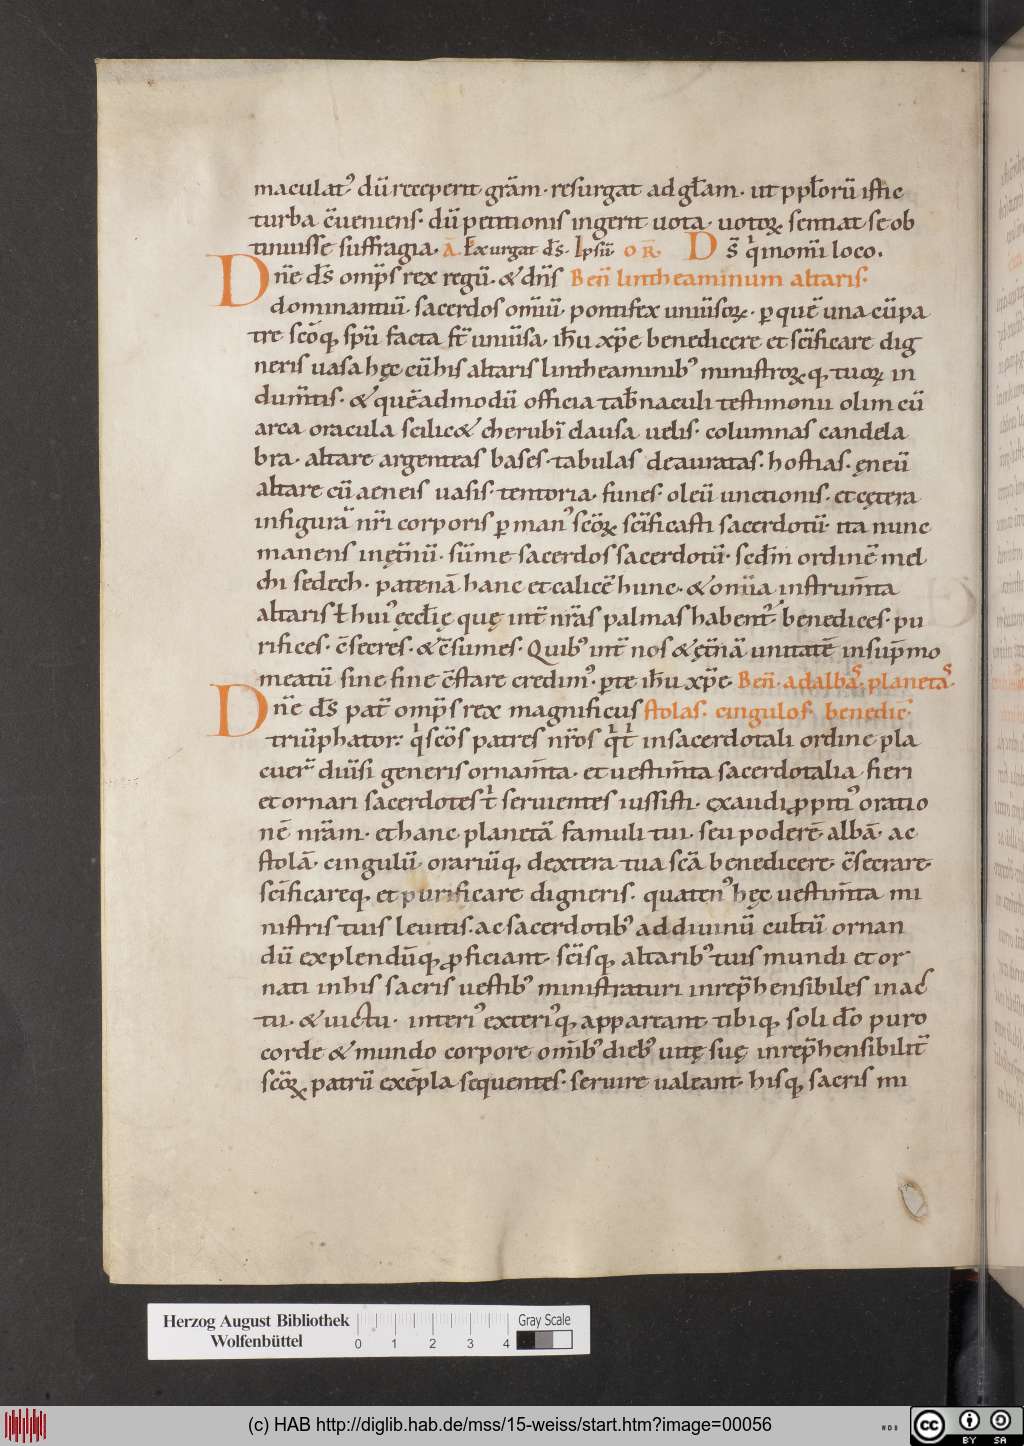 maculatꝰ dū receperit grām · resurgat ad gl̄am · ut ppl̄orū iste
turba c̄ueniens · dū petitionis ingerit uota · uotoꝝ sentiat se ob
tinuisse suffragia · A̅ · Exurgat d̄s · Ip̄sū OR̄ · D s̄ qͥ in om̄i loco ·
Dn̄e d̄s omp̄s rex regū · & dn̄s Ben̄ lintheaminum altaris ·
dominantiū · sacerdos om̄iū · pontifex uniūsoꝝ · ꝑ quē una cū pa
tre sc̄oqꝫ sp̄u facta st̄ uniūsa · ih̄u xp̄e benedicere et sc̄ificare dig
neris uasa hęc cū his altaris lintheaminibꝰ ministroꝝqꝫ tuoꝝ in
dum̄tis · & quēadmodū officia tab̄naculi testimonii olim cū
arca oracula scilic& cherubī clausa uelis · columnas candela
bra · altare argenteas bases · tabulas deauratas · hostias · ęneū
altare cū aeneis uasis · tentoria · funes · oleū unctionis · et cętera
in figurā nr̄i corporis ꝑ manꝰ sc̄oꝝ sc̄ificasti sacerdotū · ita nunc
manens in ęt̄nū · sūme sacerdos sacerdotū · sed̄m ordinē mel
chi sedech · patenā hanc et calicē hunc · & omīa instrum̄ta
altaris ł huiꝰ ęccl̄ię quę int̄ nr̄as palmas habent̄ · benedices · pu
rifices · c̄secres · & c̄sumes · Quibꝰ int̄ nos & ęt̄nā unitatē in sup̄mo
meatū sine fine c̄stare credimꝰ · ꝑ te ih̄u xp̄e Ben̄ · ad albas · planetas ·
Dn̄e d̄s pat̄ omp̄s rex magnificus stolas · cingulos · benedic̄ ·
triūphator · qͥ sc̄os patres nr̄os qͥ ł in sacerdotali ordine pla
cuer̄ diūsi generis ornam̄ta · et uestim̄ta sacerdotalia fieri
et ornari sacerdotes ł seruientes iussisti · exaudi ꝓpitiꝰ oratio
nē nr̄am · et hanc planetā famuli tui · seu poderē albā · ac
stolā · cingulū · orariūqꝫ dextera tua sc̄a benedicere · c̄secrare
sc̄ificareqꝫ et purificare digneris · quatenꝰ hęc uestim̄ta mi
nistris tuis leuitis · ac sacerdotibꝰ ad diuinū cultū ornan
dū explendūqꝫ ꝓficiant · sc̄isqꝫ altaribꝰ tuis mundi et or
nati in his sacris uestibꝰ ministraturi inrep̄hensibiles in ac
tu · & uictu · interiꝰ exteriꝰqꝫ appareant · tibiqꝫ soli d̄o puro
corde & mundo corpore om̄ibꝰ diebꝰ uitę suę inrep̄hensibilit̄
sc̄oꝝ patrū exēpla sequentes · seruire ualeant · hisqꝫ sacris mi
Herzog August Bibliothek
Wolfenbüttel
0 1 2 3 4
Gray Scale
(c) HAB http://diglib.hab.de/mss/15-weiss/start.htm?image=00056
cc BY SA